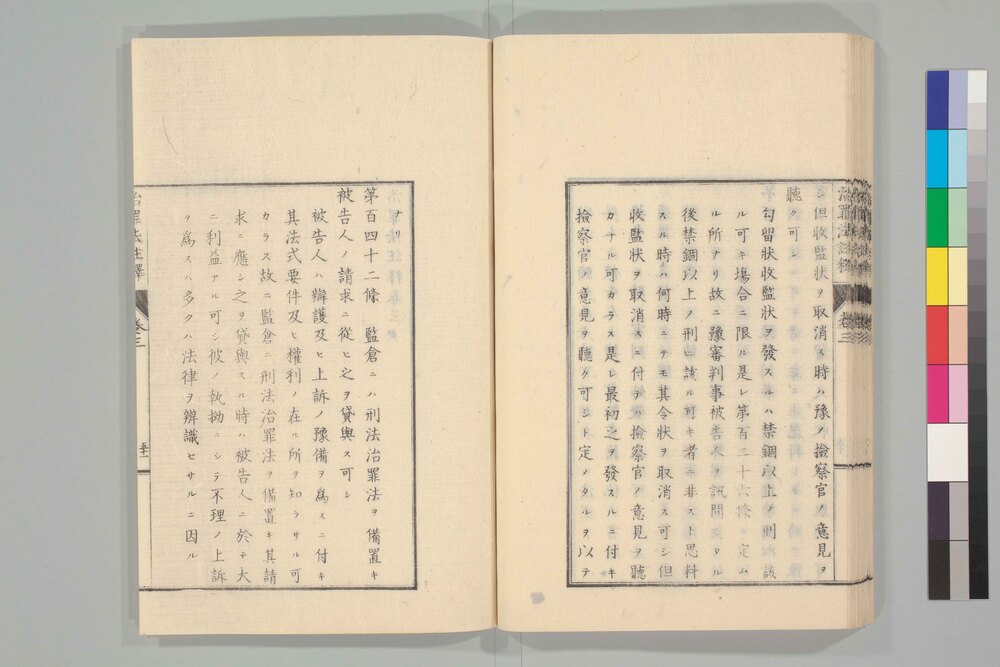 治罪法註釋 卷三
但收監狀ヲ取消ス時ハ豫ノ撿察官ノ意見ヲ
聽ク可シ
勾留狀收監狀ヲ發スルハ禁錮以上ノ刑ニ該
ル可キ塲合ニ限ル是レ第百二十六條ニ定ム
ル所ナリ故ニ豫審判事被告人ヲ訊問シタル
後禁錮以上ノ刑ニ該ル可キ者ニ非スト思料
スル時ハ何時ニテモ其令狀ヲ取消ス可シ但
收監狀ヲ取消スニ付テハ撿察官ノ意見ヲ聽
カナル可カラス是レ最初之ヲ發スルニ付キ
撿察官ノ意見ヲ聽ク可シト定メタルヲ以テ
ナリ
第百四十二條 監倉ニハ刑法治罪法ヲ備置キ
被告人ノ請求ニ從ヒ之ヲ貸與ス可シ
被告人ハ辯護及ヒ上訴ノ豫備ヲ爲スニ付キ
其法式要件及ヒ權利ノ在ル所ヲ知ラサル可
カラス故ニ監倉ニ刑法治罪法ヲ備置キ其請
求ニ應シ之ヲ貸與スル時ハ被告人ニ於テ大
ニ利益アル可シ彼ノ執拗ニシテ不理ノ上訴
ヲ爲スハ多クハ法律ヲ辨識セサルニ因ル
治罪法註釋 卷三